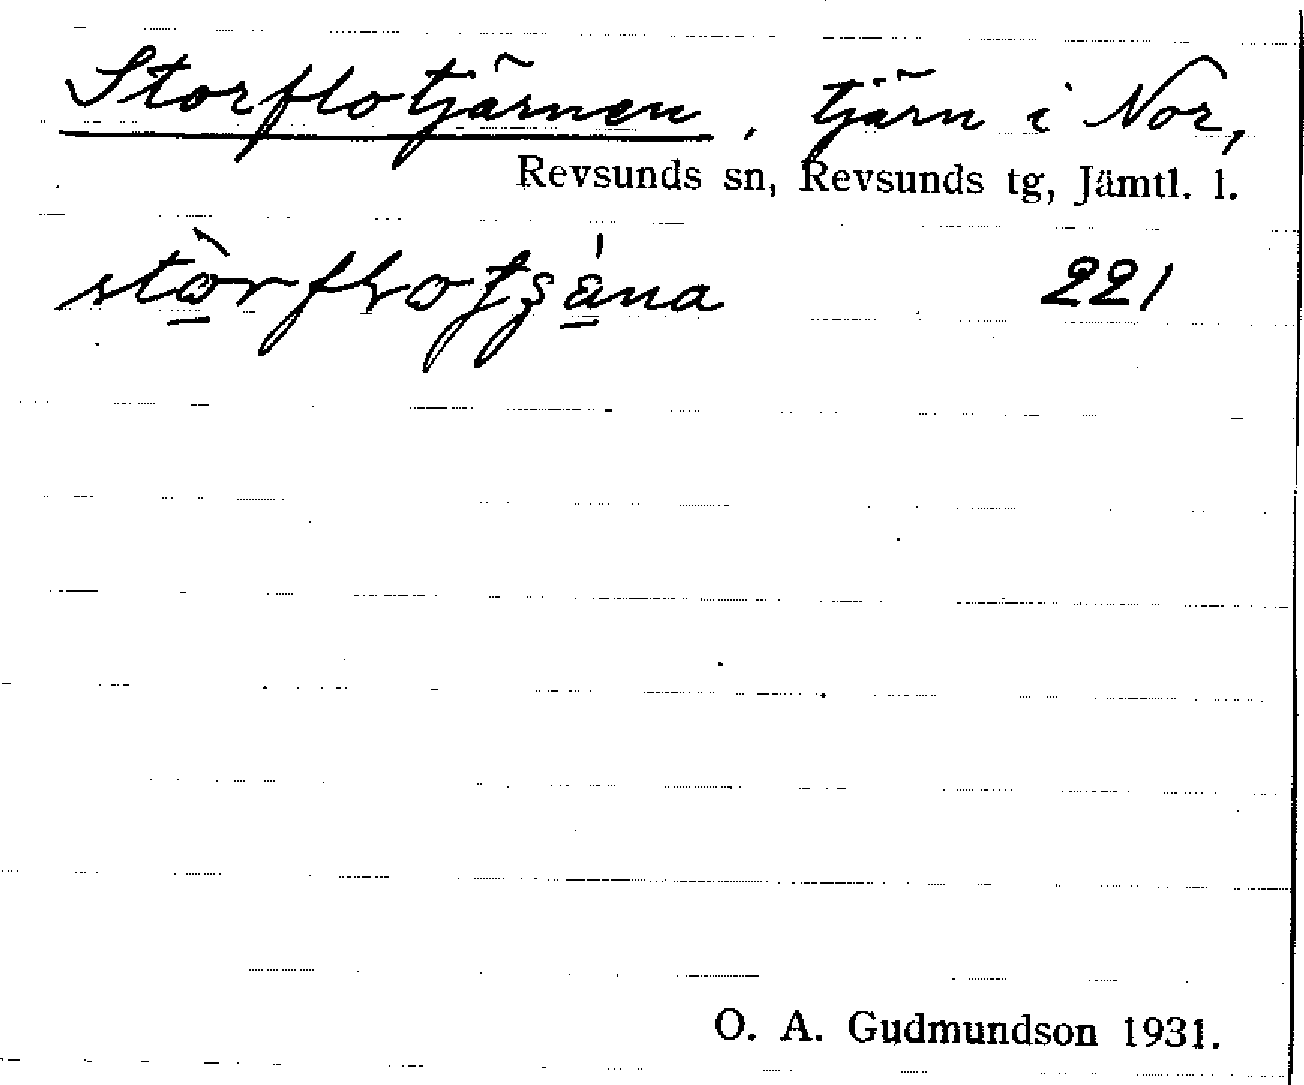 Storflotjärnen, tjärn i Nor,
Revsunds sn, Revsunds tg, Jämtl. l.
221
O. A. Gudmundson 1931.